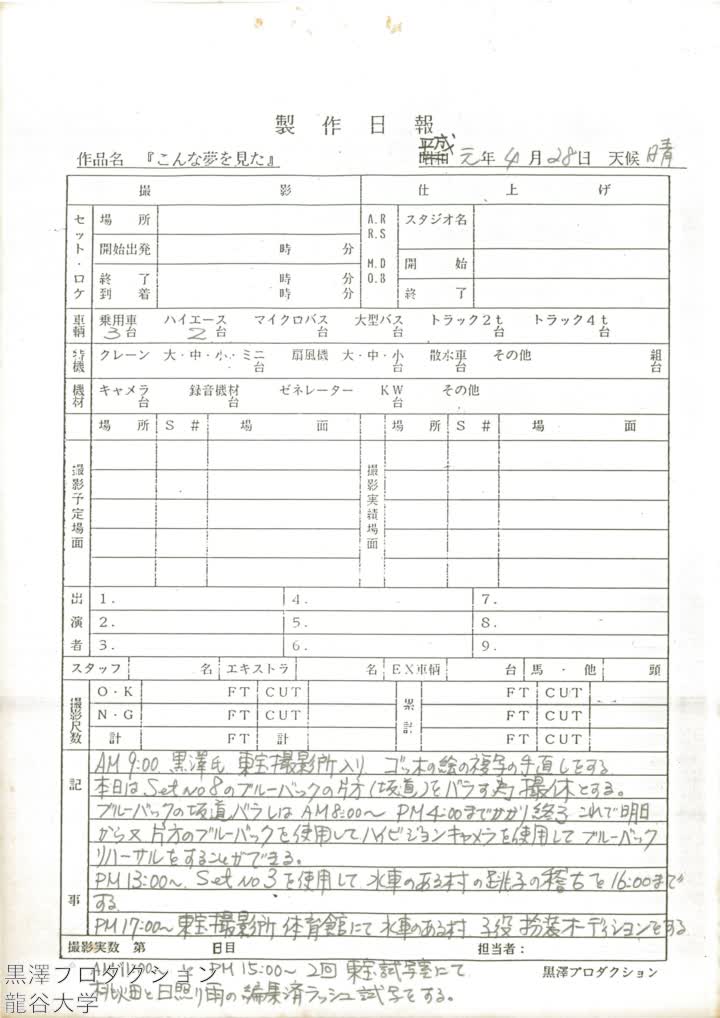 製作日報
作品名 『こんな夢を見た』 平成 元年 4月 28日 天候 晴
撮影 仕上げ
セット・ロケ 場所 A.R R.S スタジオ名
開始出発 時 分 M.D O.B 開始
終了 時 分 終了
到着 時 分
車輌 乗用車 3台 ハイエース 2台 マイクロバス 台 大型バス 台 トラック2t 台 トラック4t 台
特機 クレーン 大・中・小・ミニ 台 扇風機 大・中・小 台 散水車 台 その他 組 台
機材 キャメラ 台 録音機材 台 ゼネレーター KW 台 その他
場所 S# 場面 場所 S# 場面
撮影予定場面 撮影実績場面
出演者 1. 4. 7.
2. 5. 8.
3. 6. 9.
スタッフ 名 エキストラ 名 EX車輌 台 馬・他 頭
撮影尺数 O・K FT CUT 累計 FT CUT
N・G FT CUT FT CUT
計 FT 計 FT CUT
記事
AM 9:00 黒澤氏 東宝撮影所入り ゴッホの絵の複写の手直しをする
本日は Set No 8のブルーバックの片方(坂道)をバラす為 撮休とする。
ブルーバックの坂道バラしは AM8:00〜 PM4:00までかかり終了 これで明日
から又 片方のブルーバックを使用してハイビジョンキャメラを使用して ブルーバック
リハーサルをすることができる。
PM 13:00〜 Set No 3を使用して 水車のある村の跳子の稽古を16:00まで
する
PM 17:00〜 東宝撮影所 体育館にて 水車のある村 子役 扮装オーディションをする
撮影実数 第 日目 担当者:
AM 11:00〜 PM 15:00〜 2回 東宝試写室にて
桃畑と日照り雨の編集済ラッシュ試写をする。
黒澤プロダクション
黒澤プロダクション
龍谷大学